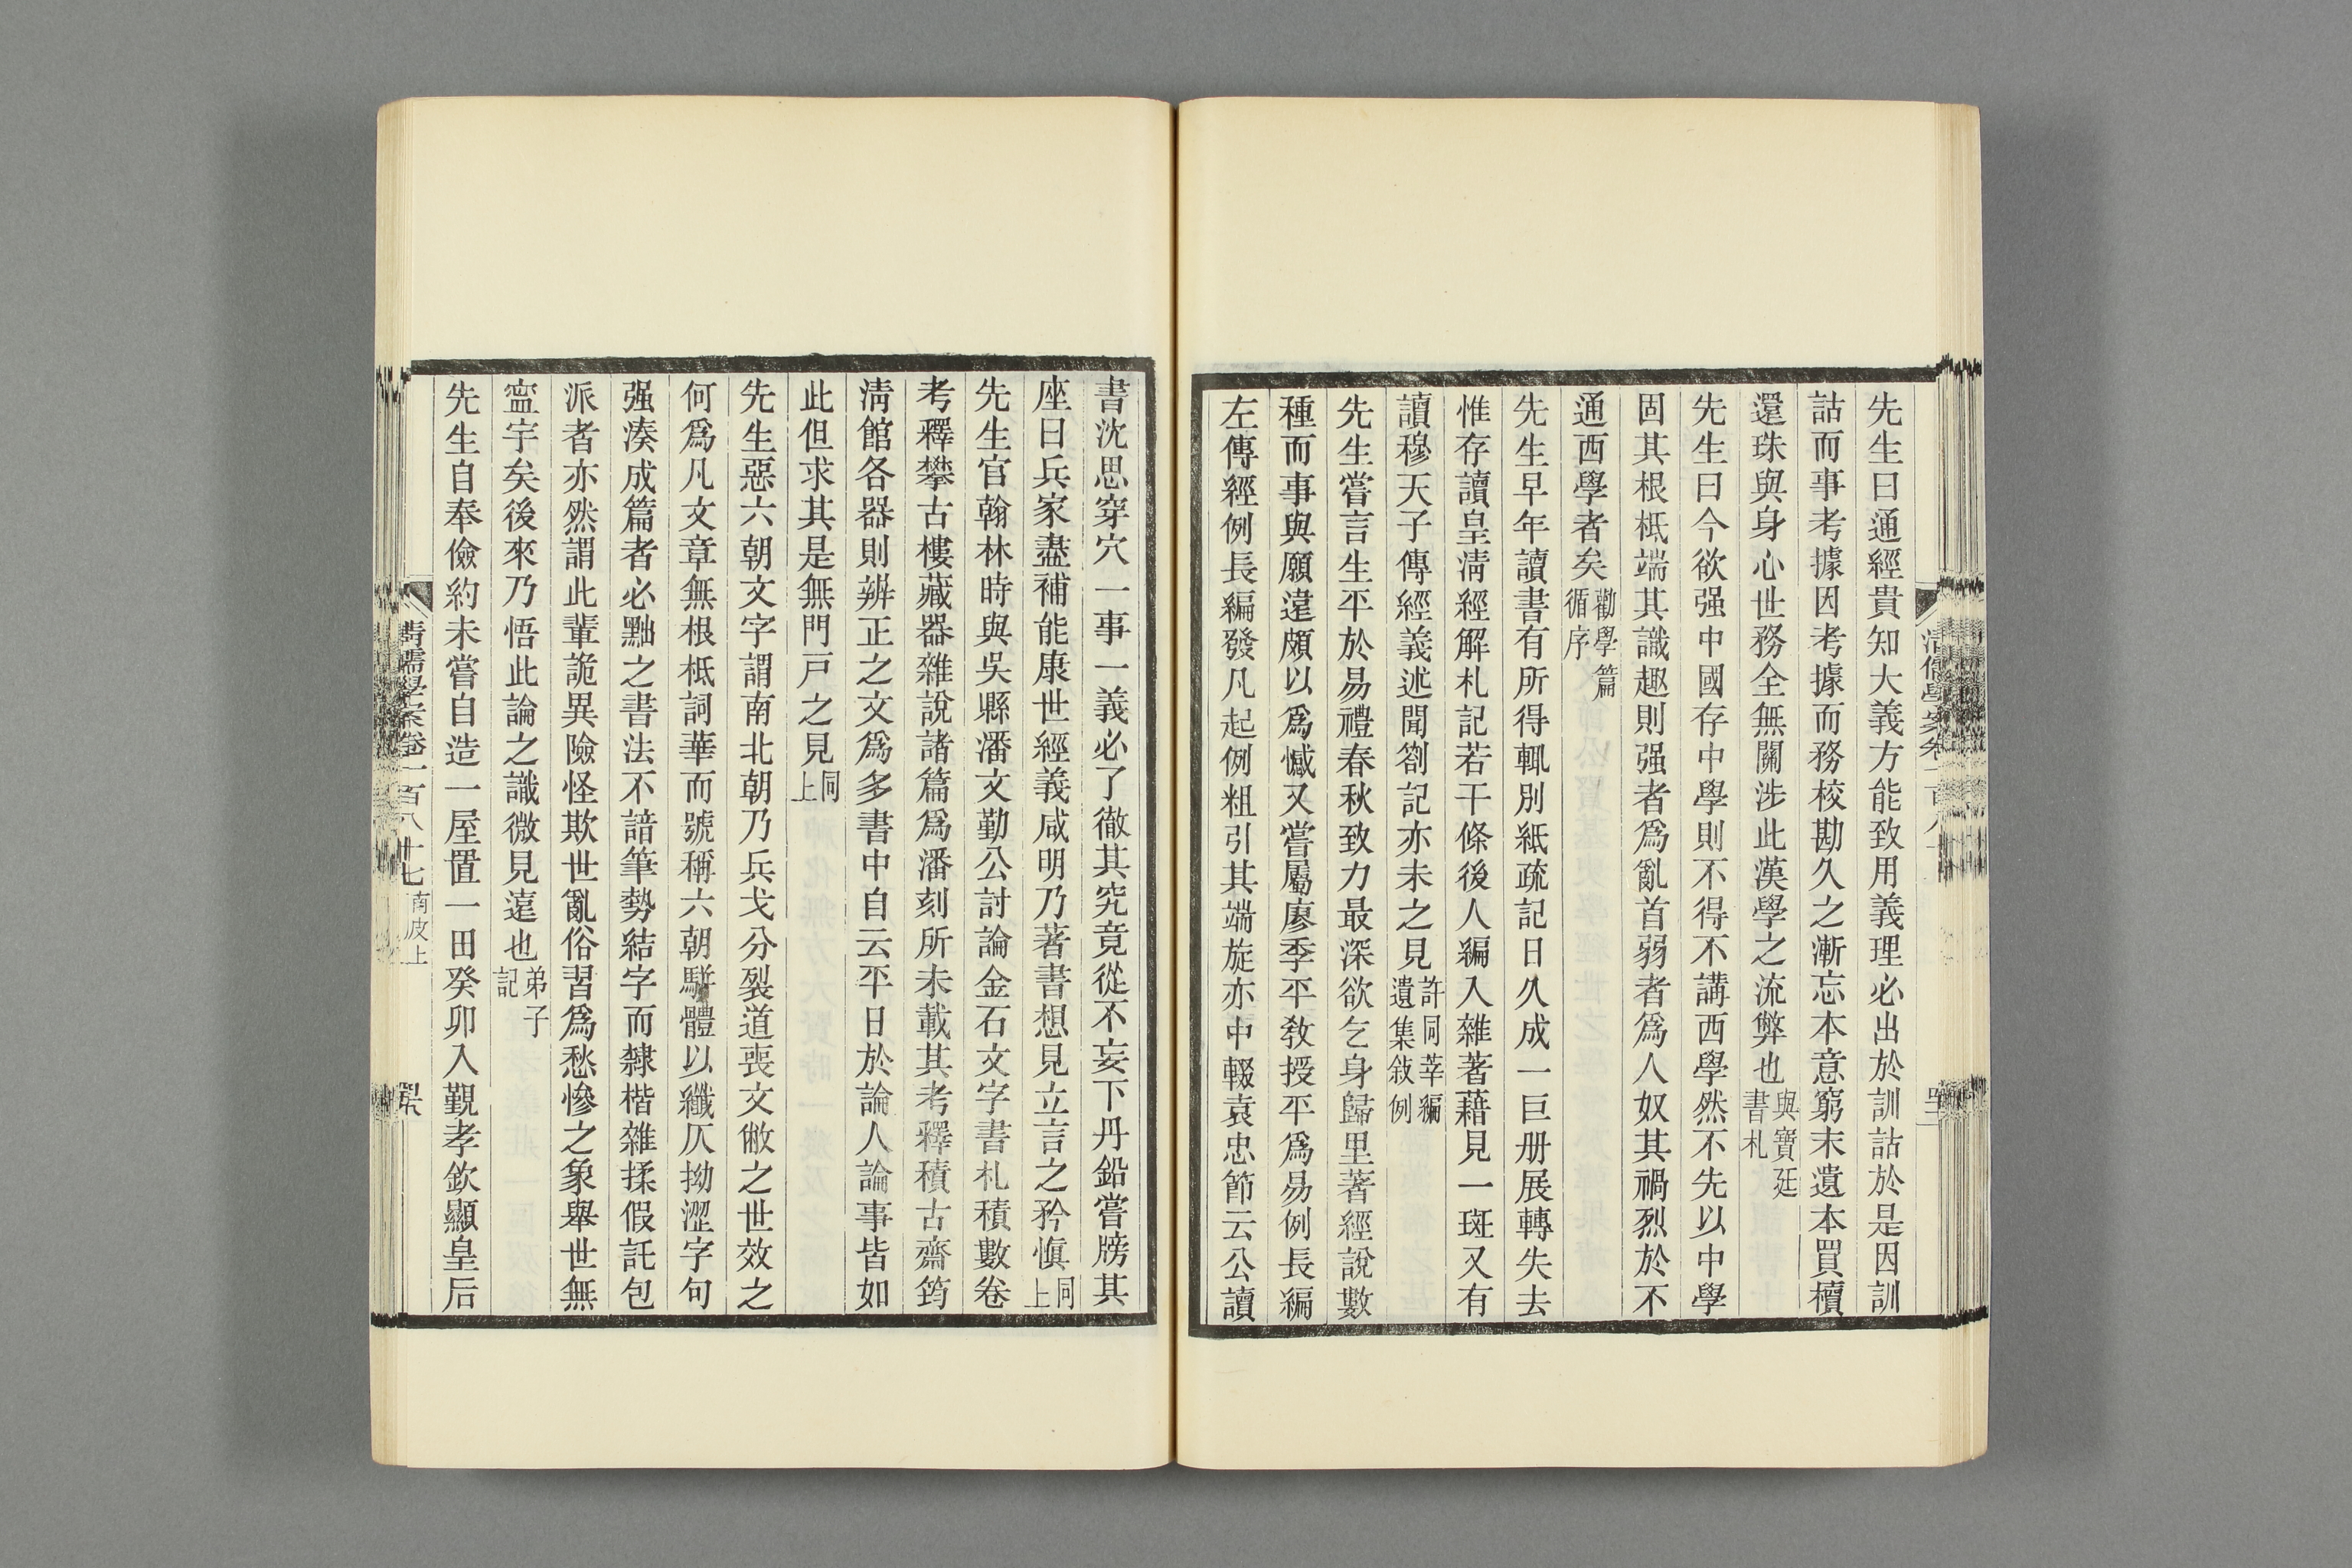 先生曰通經貴知大義方能致用義理必出於訓詁於是因訓
詁而事考據因考據而務校勘久之漸忘本意窮末遺本買櫝
還珠與身心世務全無關涉此漢學之流弊也與寶廷書札
先生曰今欲强中國存中學則不得不講西學然不先以中學
固其根柢端其識趣則强者爲亂首弱者爲人奴其禍烈於不
通西學者矣勸學篇循序
先生早年讀書有所得輒別紙疏記日久成一巨册展轉失去
惟存讀皇淸經解札記若干條後人編入雜著藉見一斑又有
讀穆天子傳經義述聞劄記亦未之見許同莘編遺集敍例
先生嘗言生平於易禮春秋致力最深欲乞身歸里著經說數
種而事與願違頗以爲憾又嘗屬廖季平敎授平爲易例長編
左傳經例長編發凡起例粗引其端旋亦中輟袁忠節云公讀
書沈思穿穴一事一義必了徹其究竟從不妄下丹鉛嘗牓其
座曰兵家盡補能康世經義咸明乃著書想見立言之矜愼同上
先生官翰林時與吳縣潘文勤公討論金石文字書札積數卷
考釋攀古樓藏器雜說諸篇爲潘刻所未載其考釋積古齋筠
淸館各器則辨正之文爲多書中自云平日於論人論事皆如
此但求其是無門戸之見同上
先生惡六朝文字謂南北朝乃兵戈分裂道喪文敝之世效之
何爲凡文章無根柢詞華而號稱六朝駢體以纖仄拗澀字句
强湊成篇者必黜之書法不諳筆勢結字而隸楷雜揉假託包
派者亦然謂此輩詭異險怪欺世亂俗習爲愁慘之象舉世無
寍宇矣後來乃悟此論之識微見遠也弟子記
先生自奉儉約未嘗自造一屋置一田癸卯入覲孝欽顯皇后
淸儒學案卷一百八十七南皮上